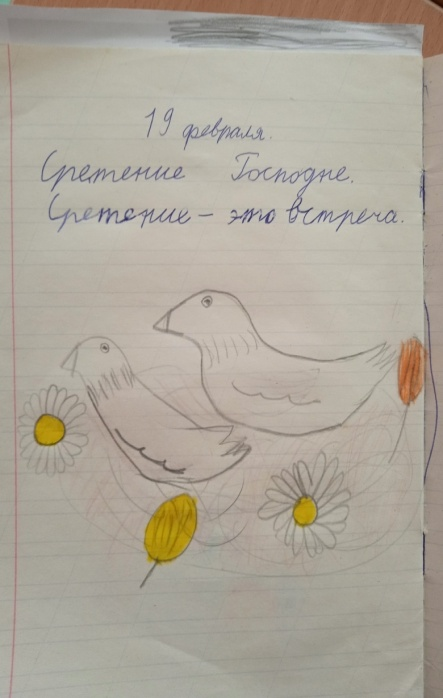 19 февраля.
Сретение Господне.
Сретение – это встреча.